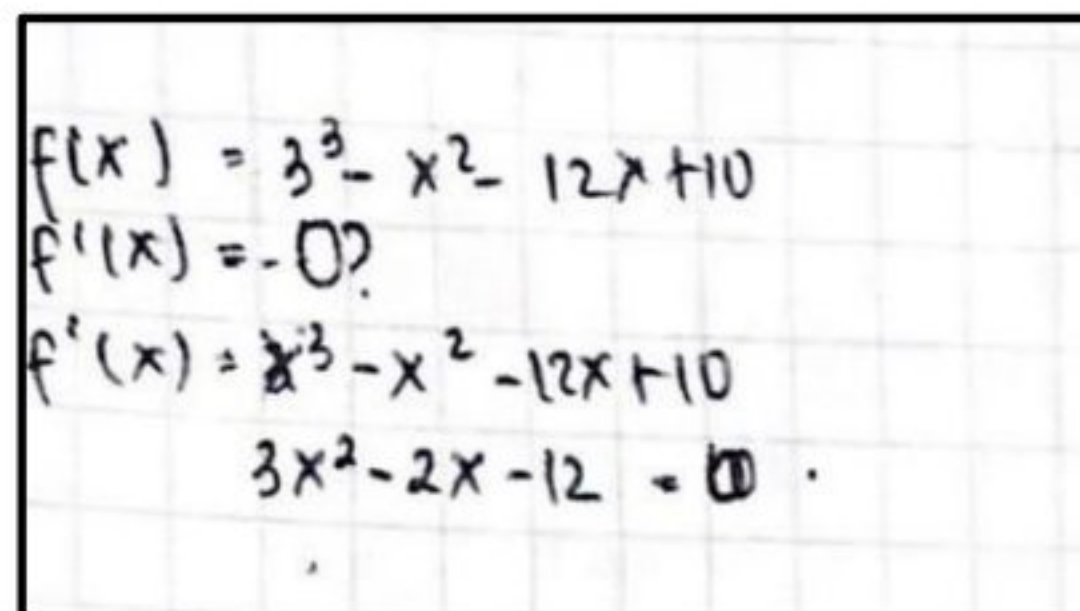 f(x) = 3³ - x² - 12x + 10
f'(x) = - 0?
f'(x) = x³ - x² - 12x + 10
3x² - 2x - 12 = 0.